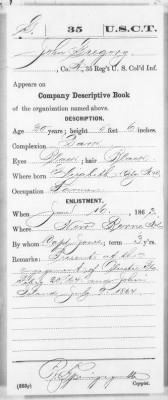 G. 35 U.S.C.T.
John Gregory
, Co. , 35 Reg't U. S. Col'd Inf.
Appears on
Company Descriptive Book
of the organization named above.
DESCRIPTION.
Age 26 years; height 5 feet 6 inches.
Complexion Dark
Eyes Black; hair Black
Where born Elizabeth City N.C.
Occupation Farmer
ENLISTMENT.
When June 16, 1863
Where New Berne N.C.
By whom Capt Jones; term 3 y'rs.
Remarks: Present at the
engagement of Olustee Fla
Feby 20/64 and John
Island July 9 1864
(383g) Copyist.